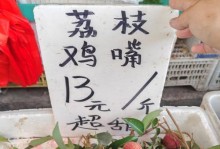 荔枝
鸡嘴
13元/斤
超甜